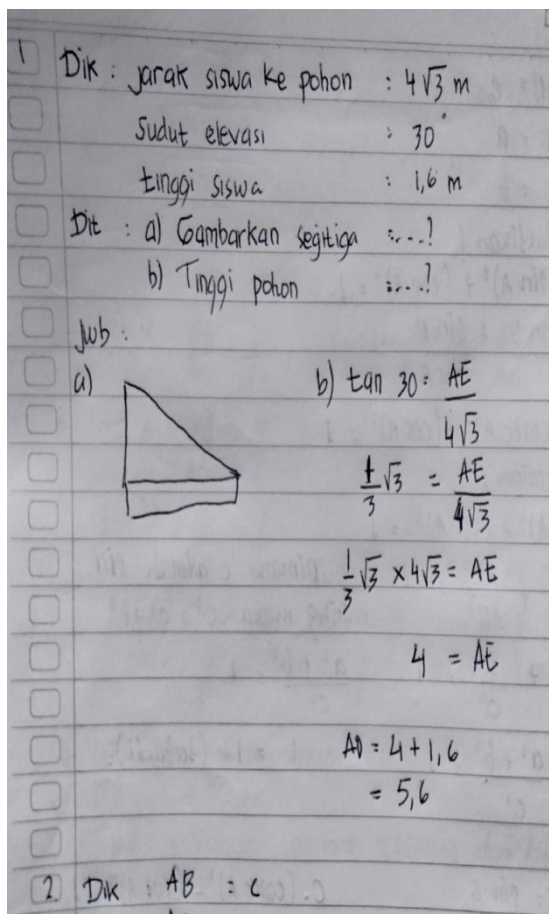 1 Dik : jarak siswa ke pohon : 4√3 m
Sudut elevasi : 30°
tinggi siswa : 1,6 m
Dit : a) Gambarkan segitiga :...?
b) Tinggi pohon :...?
Jwb :
a)
b) tan 30 = AE/4√3
1/3 √3 = AE/4√3
1/3 √3 × 4√3 = AE
4 = AE
AD = 4 + 1,6
= 5,6
2. Dik : AB = c